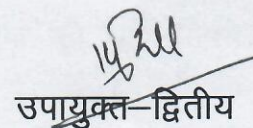 उपायुक्त–द्वितीय